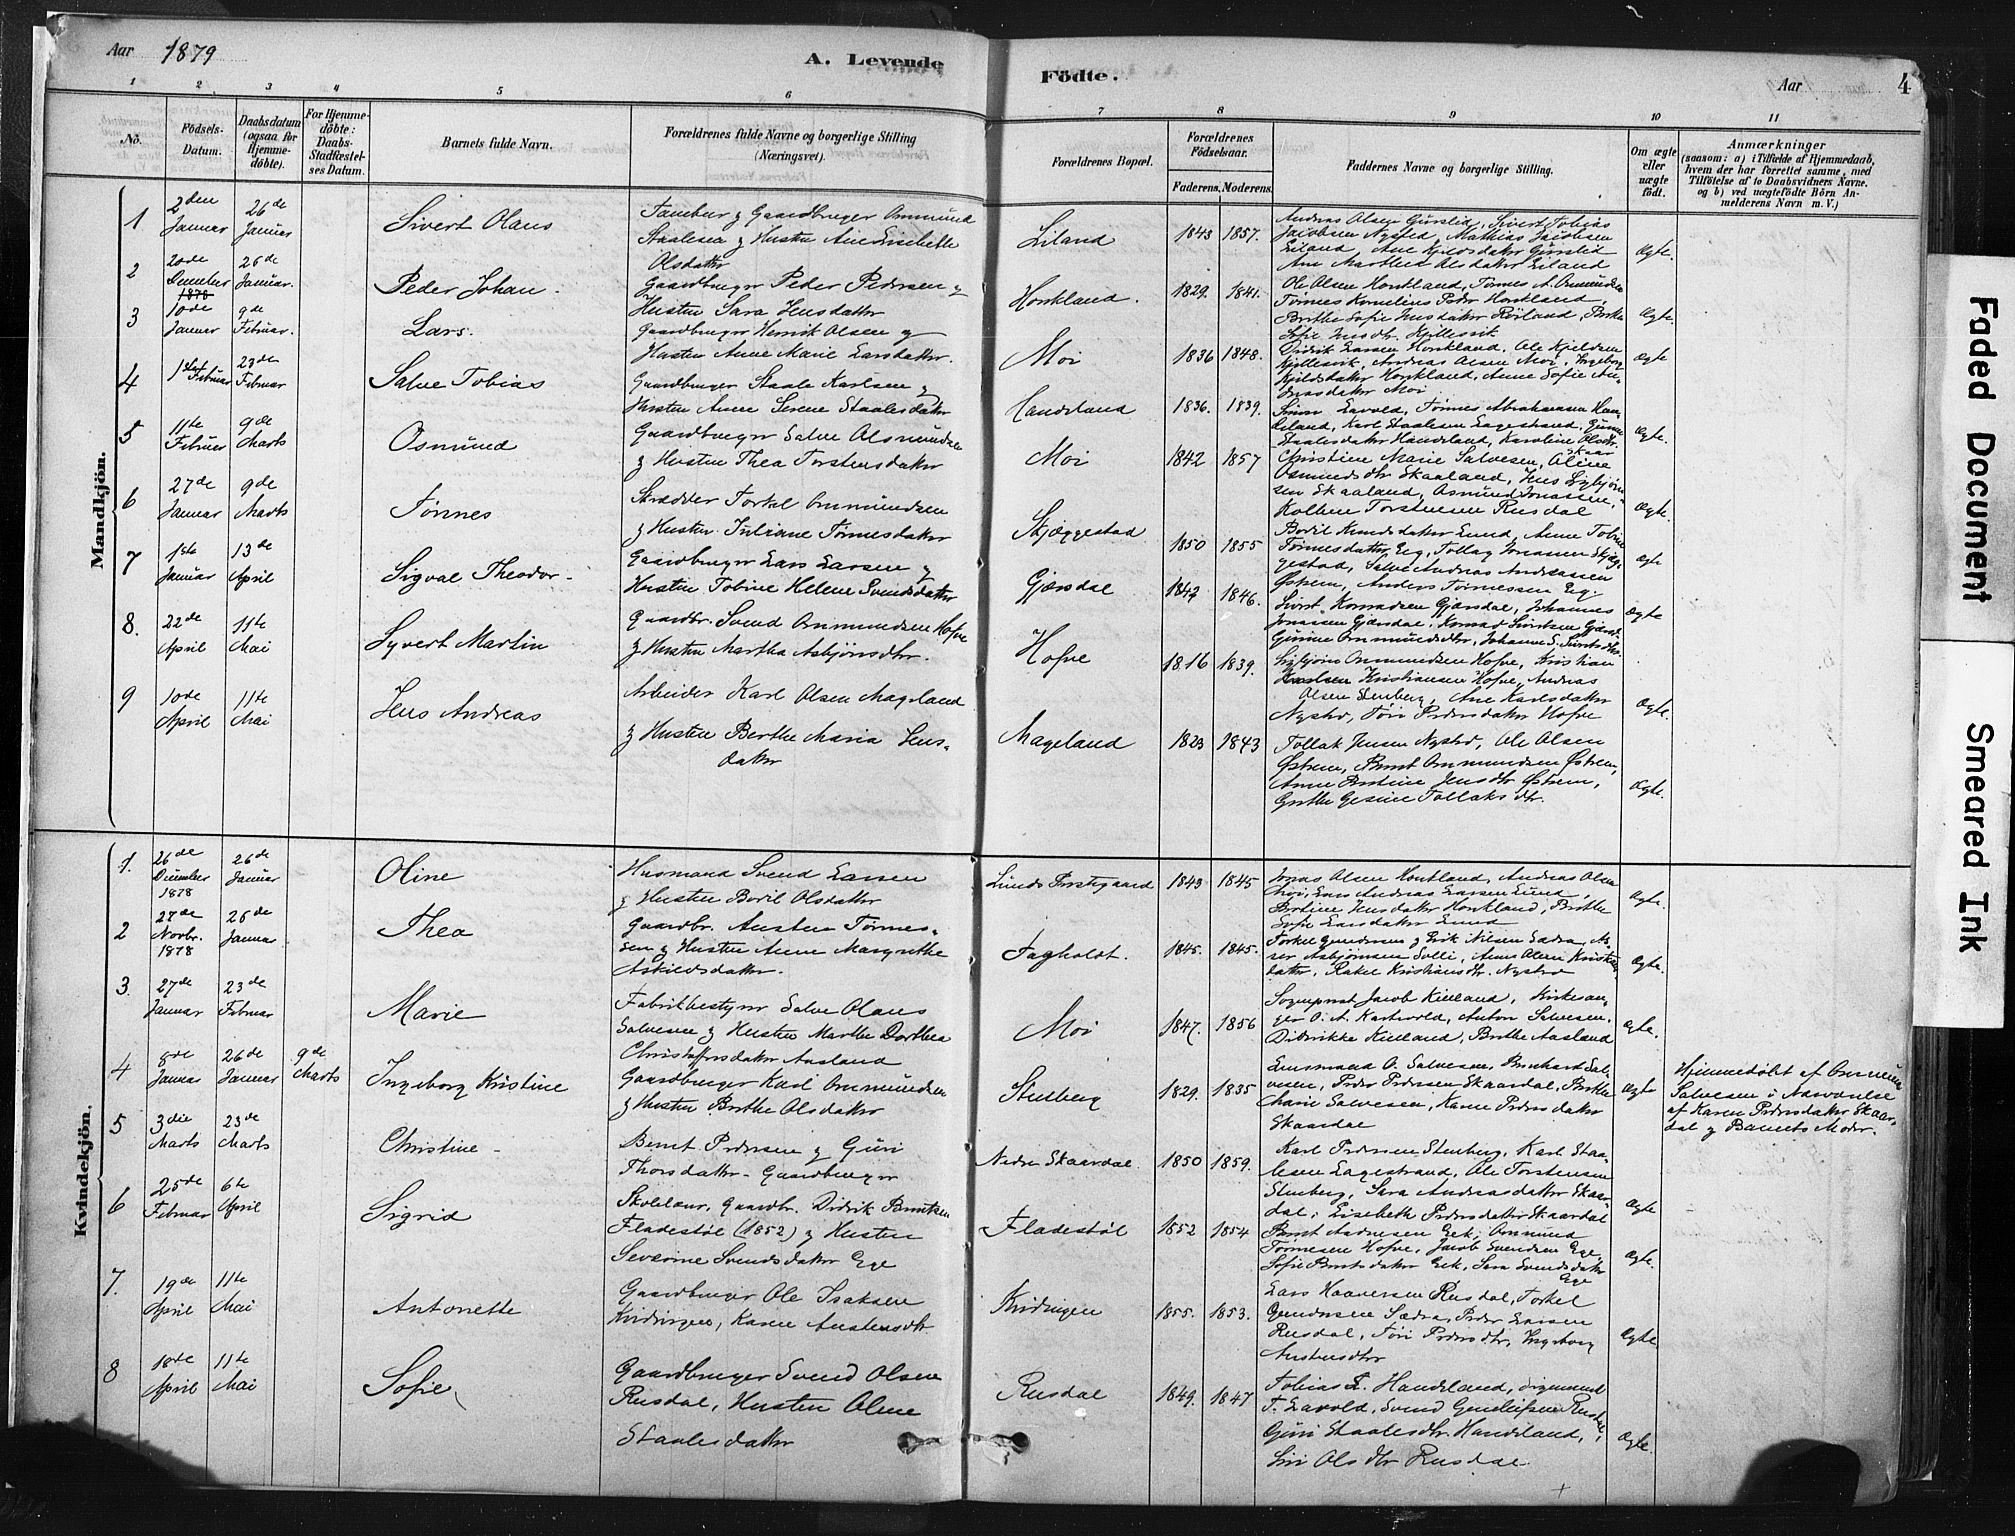 Aar 1879
A. Levende
Födte.
Aar
4
1 2 3 4 5 6 7 8 9 10 11
No.
Födsels-
Datum.
Daabsdatum
(ogsaa for
Hjemme-
döbte).
For Hjemme-
döbte:
Daabs-
Stadfæstel-
ses Datum.
Barnets fulde Navn.
Forældrenes fulde Navne og borgerlige Stilling
(Næringsvei).
Forældrenes Bopæl.
Forældrenes
Födselsaar.
Faderens. Moderens.
Faddernes Navne og borgerlige Stilling.
Om ægte
eller
uægte
födt.
Anmærkninger
(saasom: a) i Tilfælde af Hjemmedaab,
hvem der har forrettet samme, med
Tilföielse af to Daabsvidners Navne.
og b) ved uægtefödte Börn An-
melderens Navn m. V.)
Mandkjön.
1
2den
Januar
26de
Januar
Sivert Olaus
Tambur og Gaardbruger Ommund
Staalesen og Hustru Ane Lisebette
Olsdatter
Eiland
1843 1857.
Andreas Olsen Gurslid, Sivert Tobias
Jacobsen Nysted, Mathias Jacobsen
Eiland, Ane Kjeldsdatter Gurslid
Ane Marthea Olsdatter Eiland
Ægte.
2
20de
December
1878
26de
Januar.
Peder Johan.
Gaardbruger Peder Pedersen og
Hustru Sara Jensdatter
Honkland.
1829. 1841.
Ole Olsen Honkland, Tönnes A. Ommundsen
Tönnes Kornelius Peder Honkland,
Berthe Sofie Jensdatter Rörland, Berthe
Sofie Jensdtr. Kjellesvik
Ægte.
3
10de
Januar
9de
Februar.
Lars.
Gaardbruger Henrik Olsen og
Hustru Anne Marie Larsdatter.
Moi
1836 1848.
Didrik Larsen Honkland, Ole Kjeldsen
Kjellesvik, Andreas Olsen Moi, Ingeborg
Kjeldsdatter Honkland, Anne Sofie An-
dreasdatter Moi
Ægte
4
1ste Februar
23de
Februar
Salve Tobias
Gaardbruger Staale Karlsen og
Hustru Anne Serene Staalesdatter
Handeland
1836. 1839.
Simon Eavold, Tönnes Abrahamsen Han-
deland, Karl Staalesen Lagestrand, Gunne
Staalesdatter Handeland, Karoline Olsdtr.
Skaar
Ægte.
5
11te
Februar
9de
Marts
Osmund
Gaardbruger Salve Osmundsen
og Hustru Thea Torstensdatter
Moi
1842 1857
Christine Marie Salvesen, Oline
Osmundsdtr Skaaland, Jens Sigbjörn-
sen Skaaland, Osmund Jonassen,
Kolben Torstensen Rusdal
Ægte.
6
27de
Januar
9de
Marts
Tönnes
Skrædder Torkel Ommundsen
og Hustru Juliane Tönnesdatter
Skjæggestad
1850 1855
Boril Knudsdatter Lund, Anne Tobine
Tönnesdatter Eeg, Tollag Jonassen Skjæg-
gestad, Salve Andreas Andreassen
Östrem, Anders Tönnessen Eeg.
Ægte
7
1ste
Januar
13de
April
Sigval Theodor.
Gaardbruger Lars Larsen og
Hustru Tobine Helene Svendsdatter
Gjærsdal
1842 1846.
Sivert Konradsen Gjærsdal, Johannes
Jonassen Gjærsdal, Konrad Sivertsen Gjærsd.
Gurine Ommundsdtr, Johanne S. Sivertsdtr
Ægte
8.
22de
April
11te
Mai
Syvert Martin
Gaardbr. Svend Ommundsen Hofve
og Hustru Martha Asbjörnsdtr.
Hofve
1816 1839.
Sigbjörn Ommundsen Hofve, Kristian
Karlsen Kristiansen Hofve, Andreas
Olsen Stenberg, Ane Karlsdatter
Nysted, Töri Pedersdatter Hofve
Ægte.
9
10de
April
11te
Mai
Jens Andreas
Arbeider Karl Olsen Mageland
og Hustru Berthe Maria Jens-
datter
Mageland
1823 1843
Tollak Jensen Nysted, Ole Olsen
Östrem, Bernt Ommundsen Östrem,
Anne Bertine Jensdtr Östrem,
Grethe Gesine Tollaksdtr.
Ægte.
Kvindekjön.
1.
26de
December
1878
26de
Januar
Oline
Husmand Svend Larsen
og Hustru Boril Olsdatter
Lunds Prestegaard
1843 1845
Jonas Olsen Honkland, Andreas Olsen
Moi, Lars Andreas Larsen Lund,
Bertine Jensdatter Honkland, Berthe
Sofie Larsdatter Lund
Ægte.
2
27de
Novbr.
1878
26de
Januar.
Thea
Gaardbr. Austen Tönnes-
sen og Hustru Anne Margrethe
Askildsdatter.
Fagholdt.
1845. 1845.
Torkel Gundersen og Erik Nilsen Sædra, As-
ser Asbjörnsen Solli, Anne Oline Kristens-
datter, Rakel Kristiansdtr. Nysted
Ægte.
3.
27de
Januar
23de
Februar
Marie
Fabrikbestyrer Salve Olaus
Salvesen og Hustru Marthe Dorthea
Christoffersdatter Aasland
Moi
1847. 1856
Sogneprest Jacob Kielland, Kirkesan-
ger O. A. Kartvold, Anton Salvesen,
Didrikke Kielland, Berthe Aasland
Ægte.
4
8de
Januar
26de
Januar
9de
Marts
Ingeborg Kristine
Gaardbruger Karl Ommundsen
og Hustru Berthe Olsdatter
Stenberg
1829. 1835
Lensmand O. Salvesen, Bernhard Sal-
vesen, Peder Pedersen Skaardal, Berthe
Marie Salvesen, Karen Pedersdatter
Skaardal
Ægte
Hjemmedöbt af Ommund
Salvesen i Nærværelse
af Karen Pedersdatter Skaar-
dal og Barnets Moder.
5
3die
Marts
23de
Marts
Christine
Bernt Pedersen og Guri
Thorsdatter. Gaardbruger
Nedre Skaardal.
1850 1859.
Karl Pedersen Stenberg, Karl Staa-
lesen Lagestrand, Ole Torstensen
Stenberg, Sara Andreasdatter Skaar-
dal, Lisebeth Pedersdatter Skaardal
Ægte
6
25de
Februar
6te
April
Sigrid
Skolelær. Gaardbr. Didrik Berntsen
Fladestöl (1852) og Hustru
Severine Svendsdatter Ege
Fladestöl
1852 1854
Bernt Aadnesen Eek, Ommund
Tönnesen Hofve, Jacob Svendsen Ege,
Sofie Berntsdatter Eek, Sara Svendsdatter
Ege
Ægte.
7.
19de
April
11te
Mai
Antonette
Gaardbruger Ole Isaksen
Kvidingen, Karen Austensdtr.
Kvidingen
1855. 1853.
Lars Haaversen Rusdal, Torkel
Gundersen Sædra, Peder Larsen
Rusdal, Töri Pedersdtr, Ingeborg
Austensdtr
Ægte.
8
18de
April
11te
Mai
Sofie
Gaardbruger Svend Olsen
Rusdal, Hustru Oline
Staalesdatter
Rusdal
1849. 1847
Tobias T. Handeland, Sigmund
T. Eavold, Svend Gundleifsen Rusdal,
Guri Staalesdtr. Handeland,
Siri Olsdtr Rusdal
Ægte.
Faded Document
Smeared Ink